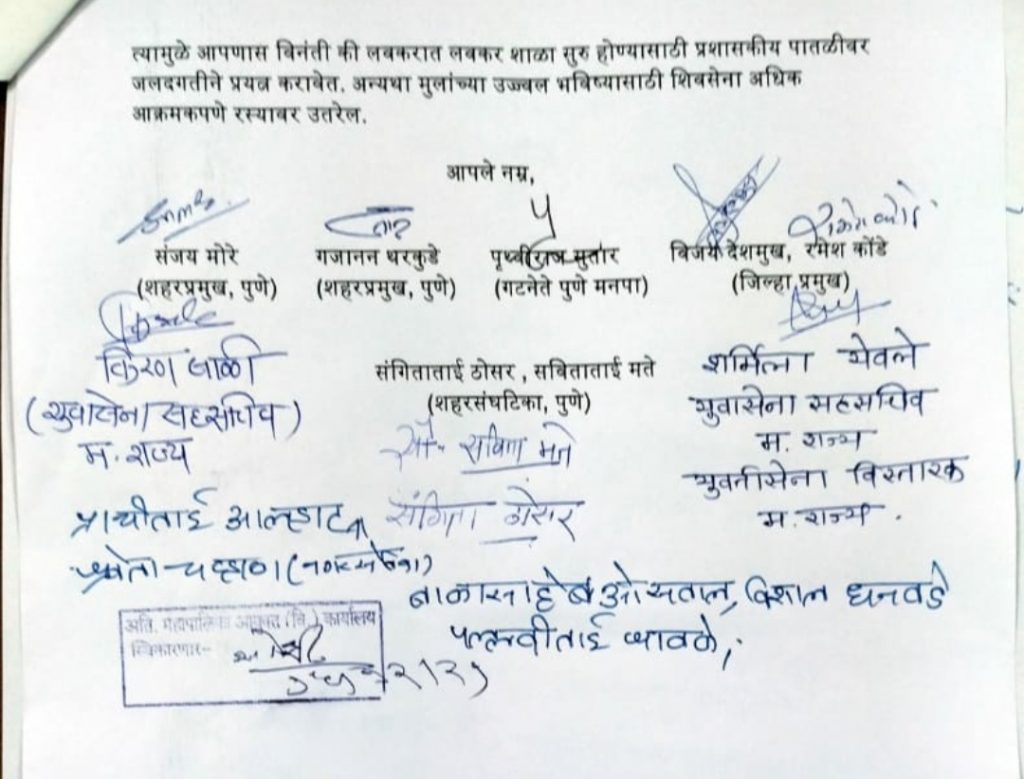 त्यामुळे आपणास विनंती की लवकरात लवकर शाळा सुरु होण्यासाठी प्रशासकीय पातळीवर
जलदगतीने प्रयत्न करावेत. अन्यथा मुलांच्या उज्वल भविष्यासाठी शिवसेना अधिक
आक्रमकपणे रस्त्यावर उतरेल.
आपले नम्र,
संजय मोरे गजानन थरकुडे पृथ्वीराज सुतार विजय देशमुख, रमेश कोंडे
(शहरप्रमुख, पुणे) (शहरप्रमुख, पुणे) (गटनेते पुणे मनपा) (जिल्हा प्रमुख)
किरण साळी
(युवासेना सहसचिव)
म. राज्य
संगिताताई ठोसर, सविताताई मते
(शहरसंघटिका, पुणे)
सौ. सविता मते
संगिता ठोसर
शर्मिला येवले
युवासेना सहसचिव
म. राज्य
युवतीसेना विस्तारक
म. राज्य.
प्राचीताई आल्हाट
श्वेता चव्हाण (नगरसेविका)
बाळासाहेब ओसवाल, विशाल धनवडे
पल्लवीताई जावळे,
अति. महापालिका आयुक्त (वि.) कार्यालय
स्विकारणार-